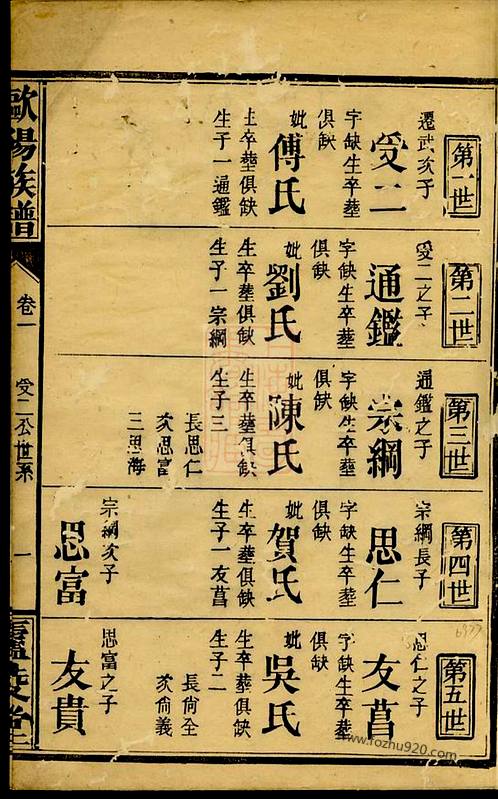 第一世
遷武次子
受二
字缺生卒塟
俱缺
妣
傅氏
生卒塟俱缺
生子一通鑑
第二世
受二之子
通鑑
字缺生卒塟
俱缺
妣
劉氏
生卒塟俱缺
生子一宗綱
第三世
通鑑之子
宗綱
字缺生卒塟
俱缺
妣
陳氏
生卒塟俱缺
生子三
長思仁
次思富
三思海
第四世
宗綱長子
思仁
字缺生卒塟
俱缺
妣
賀氏
生卒塟俱缺
生子一友菖
宗綱次子
思富
第五世
思仁之子
友菖
字缺生卒塟
俱缺
妣
吳氏
生卒塟俱缺
生子二
長尙全
次尙義
思富之子
友貴
歐陽族譜
卷一
受二公世系
一
www.fozhu920.com